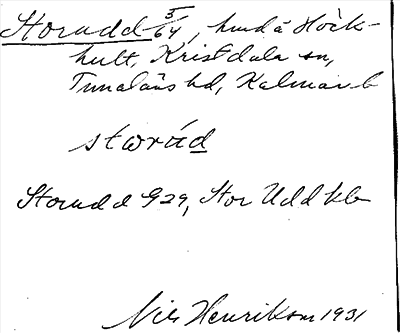 Storudd 5/64, hmd å Höck-
hult, Kristdala sn,
Tunaläns hd, Kalmar l
storúd
Storudd G29, Stor Udd kb
Nils Henrikson 1931